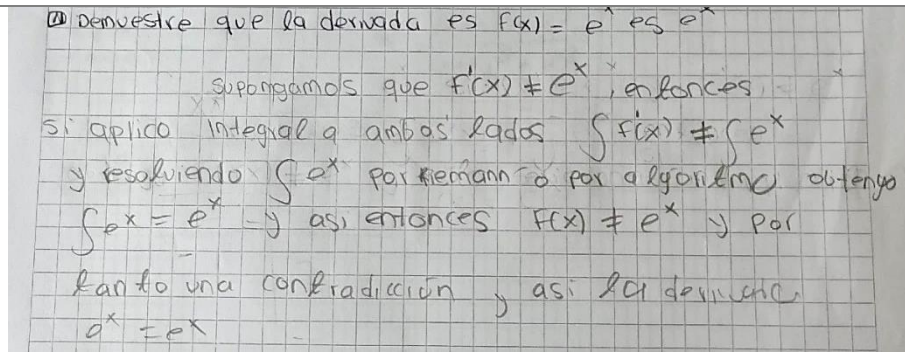 Demuestre que la derivada es f(x) = e^x es e^x
supongamos que f'(x) ≠ e^x, entonces
si aplico integral a ambos lados ∫ f'(x) ≠ ∫ e^x
y resolviendo ∫ e^x por riemann o por algoritmo obtengo
∫ e^x = e^x y asi entonces f(x) ≠ e^x y por
tanto una contradicción y asi la
e^x = e^x